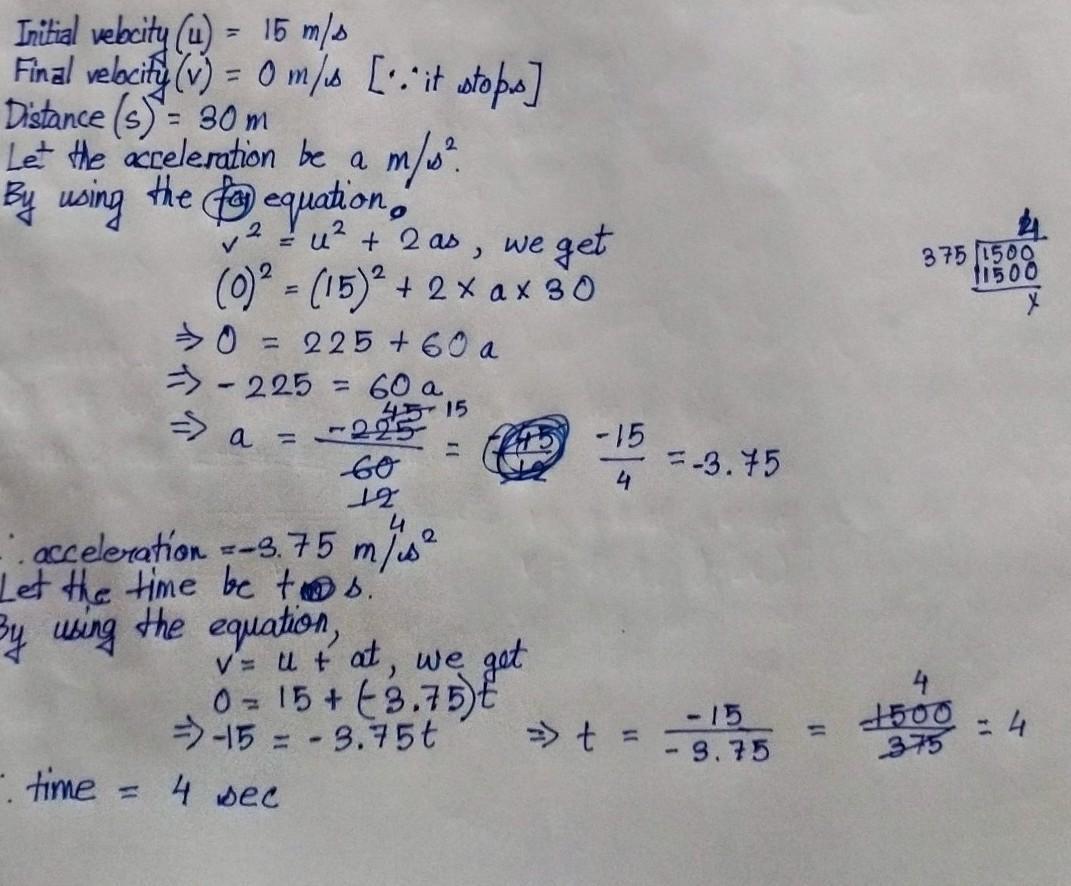 Initial velocity (u) = 15 m/s
Final velocity (v) = 0 m/s [∵ it stops]
Distance (s) = 30 m
Let the acceleration be a m/s².
By using the equation,
v² = u² + 2as, we get
(0)² = (15)² + 2 × a × 30
⇒ 0 = 225 + 60 a
⇒ - 225 = 60 a
45 15
⇒ a = -225/60 = -15/4 = -3.75
12
4
∴ acceleration = -3.75 m/s²
Let the time be t s.
By using the equation,
v = u + at, we get
0 = 15 + (-3.75)t
⇒ -15 = - 3.75t ⇒ t = -15/-3.75 = 1500/375 = 4
4
∴ time = 4 sec
4
375 1500
1500
x